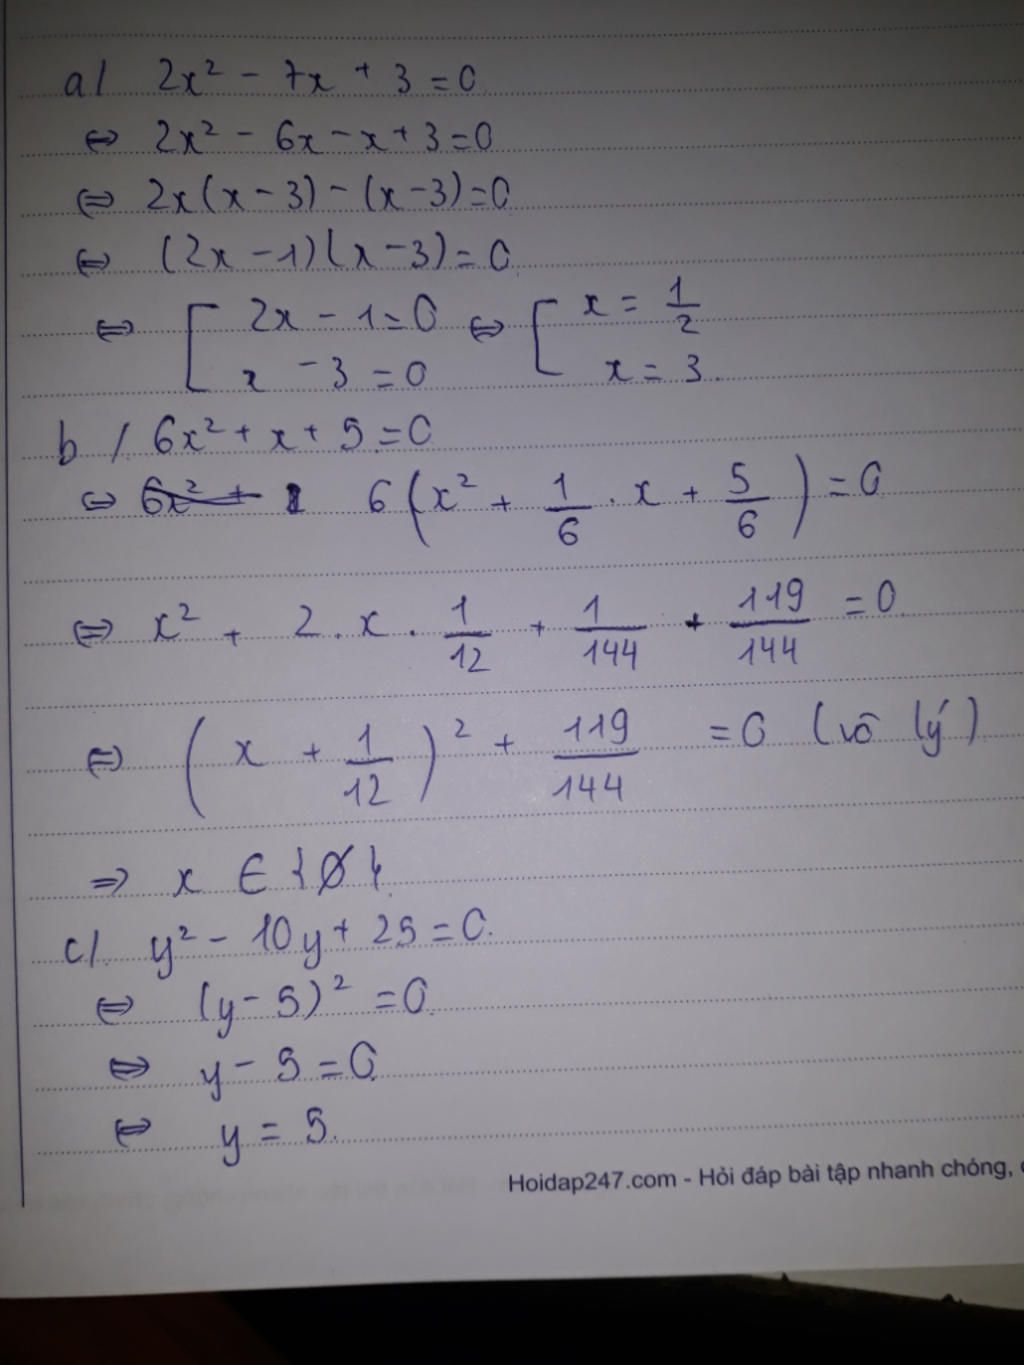 a/ 2x² - 7x + 3 = 0
⇔ 2x² - 6x - x + 3 = 0
⇔ 2x(x - 3) - (x - 3) = 0
⇔ (2x - 1)(x - 3) = 0
⇔ [ 2x - 1 = 0 ⇔ [ x = 1/2
x - 3 = 0 x = 3.
b/ 6x² + x + 5 = 0
⇔ 6x² + 6(x² + 1/6 . x + 5/6) = 0
⇔ x² + 2 . x . 1/12 + 1/144 + 119/144 = 0
⇔ (x + 1/12)² + 119/144 = 0 (vô lý)
⇒ x ∈ {∅}
c/ y² - 10y + 25 = 0.
⇔ (y - 5)² = 0
⇔ y - 5 = 0
⇔ y = 5.
Hoidap247.com - Hỏi đáp bài tập nhanh chóng,